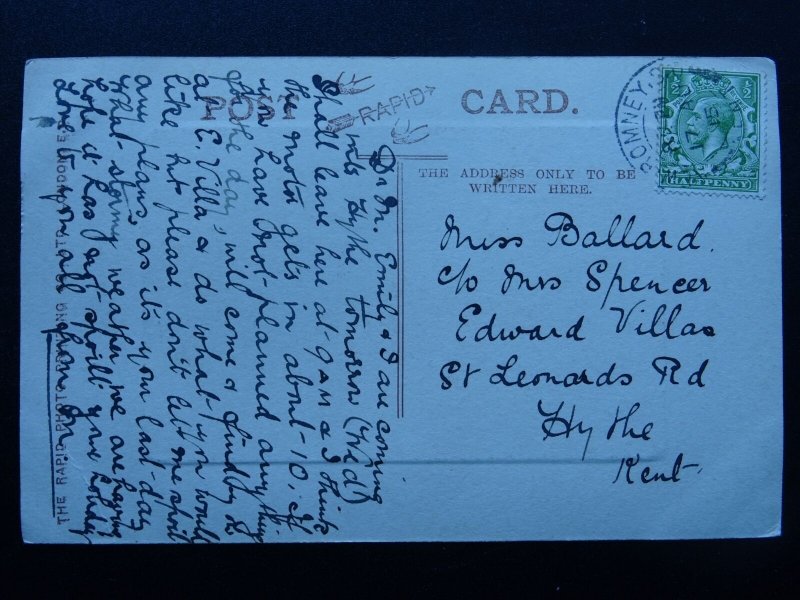 POST CARD.
RAPID
THE ADDRESS ONLY TO BE
WRITTEN HERE.
ROMNEY,
17
15
HALFPENNY
½
½
Miss Ballard.
c/o Mrs Spencer
Edward Villas
St Leonards Rd
Hythe
Kent
Dr M. Emily & I are coming
into Hythe tomorrow (Wed)
Shall leave here at 9 am & I think
the motor gets in about 10. If
you have not planned anything
for the day, will come & find
at E. Villa & do what you would
like but please don't let me spoil
any plans as it's your last day
What stormy weather we are having
hope it has not spoilt your holiday
Love to you all from
THE RAPID PHOTO PRINTING